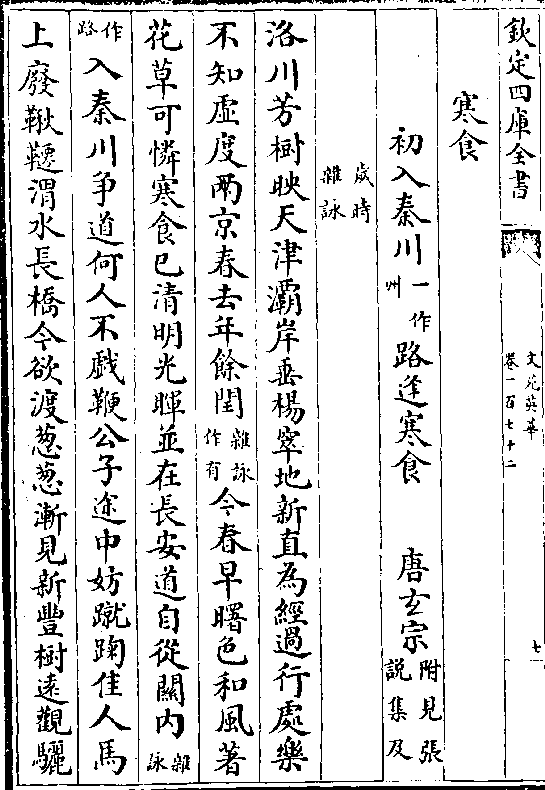 欽定四庫全書
文苑英華
卷一百七十二
七
寒食
初入秦川一作州路逢寒食 唐玄宗附見張說集及
歲時雜詠
洛川芳樹映天津灞岸垂楊窣地新直為經過行處樂
不知虛度兩京春去年餘閏雜詠作有今春早曙色和風著
花草可憐寒食已清明光暉並在長安道自從關内雜詠
作路入秦川争道何人不戲鞭公子途中妨蹴踘佳人馬
上廢鞦韆渭水長橋今欲渡葱葱漸見新豐樹遠觀驪